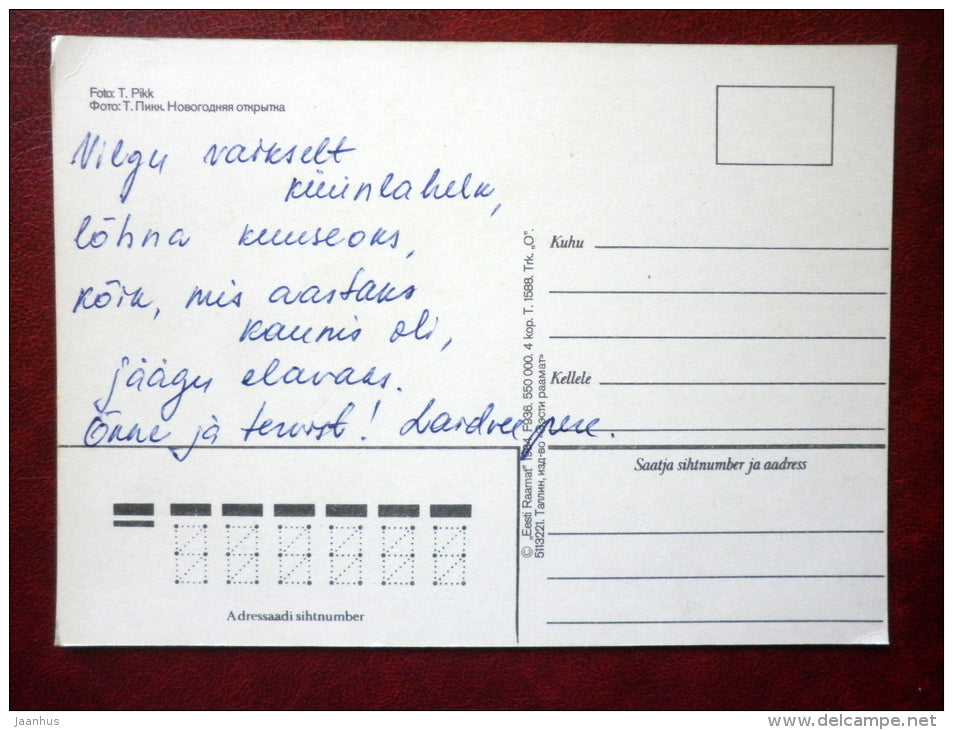 Foto: T. Pikk
Фото: Т. Пикк. Новогодняя открытка
Vilgu vaikselt
küünlahelk,
lõhna kuuseoks,
kõik, mis aastaks
kaunis oli,
jäägu elavaks.
Õnne ja tervist! pere.
Kuhu
Kellele
Saatja sihtnumber ja aadress
© „Eesti Raamat" 1984. F936. 550 000. 4 kop. T. 1588. Trk. „O".
5113221. Таллин, изд-во «Ээсти раамат»
Adressaadi sihtnumber
Jaanhus
www.delcampe.net